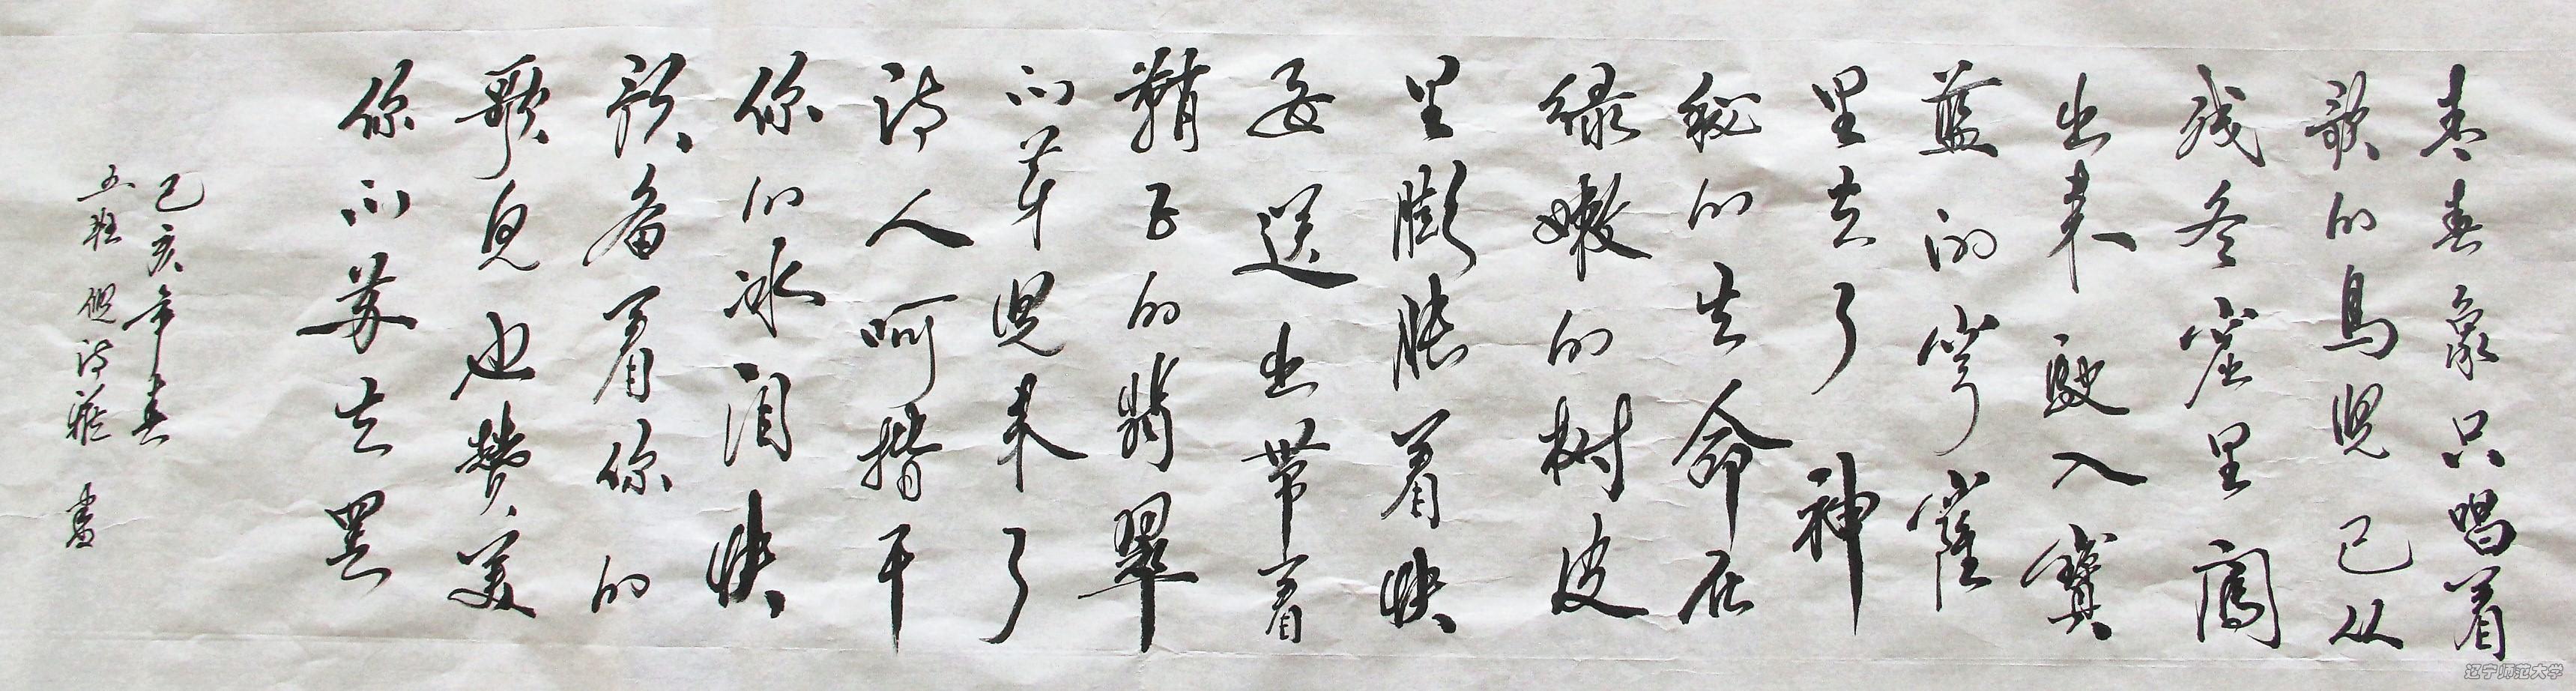 春春象只唱着
歌的鸟児已从
残冬窟里闯
出来驶入寶
蓝的穹窿
里去了神
秘的生命在
绿嫩的树皮
里膨胀着快
要送出带着
鞘子的翡翠
的芽児来了
诗人呵揩干
你的冰泪快
预备着你的
歌儿也赞美
你的苏生罢
己亥年春
五班倪诗雅書
辽宁师范大学